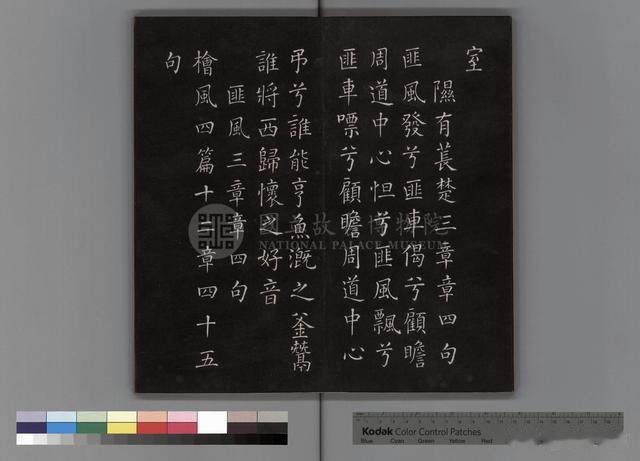 室
隰有萇楚三章章四句
匪風發兮匪車偈兮顧瞻
周道中心怛兮匪風飄兮
匪車嘌兮顧瞻周道中心
弔兮誰能亨魚漑之釜鬵
誰將西歸懷之好音
匪風三章章四句
檜風四篇十二章四十五
句
國立故宮博物院
NATIONAL PALACE MUSEUM
Kodak Color Control Patches
Blue Cyan Green Yellow Red